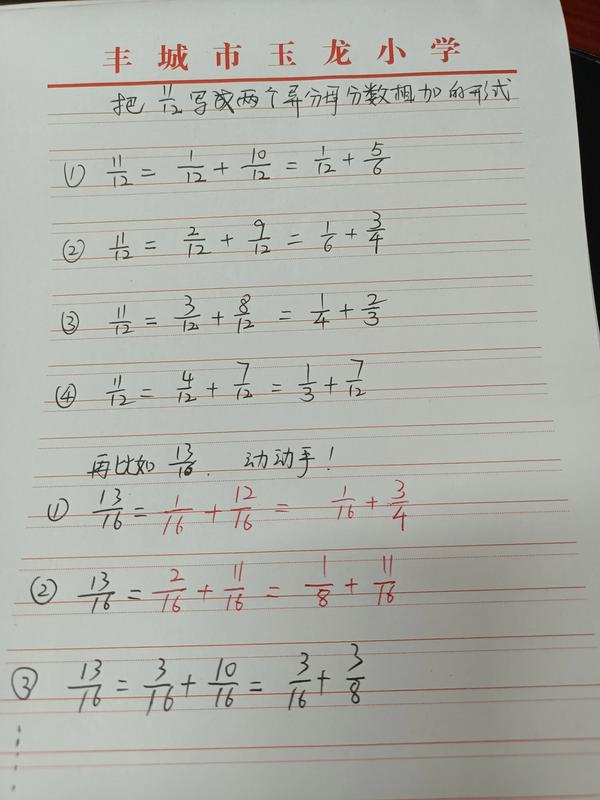 丰城市玉龙小学
把 11/12 写成两个异分母分数相加的形式
① 11/12 = 1/12 + 10/12 = 1/12 + 5/6
② 11/12 = 2/12 + 9/12 = 1/6 + 3/4
③ 11/12 = 3/12 + 8/12 = 1/4 + 2/3
④ 11/12 = 4/12 + 7/12 = 1/3 + 7/12
再比如 13/16. 动动手!
① 13/16 = 1/16 + 12/16 = 1/16 + 3/4
② 13/16 = 2/16 + 11/16 = 1/8 + 11/16
③ 13/16 = 3/16 + 10/16 = 3/16 + 3/8